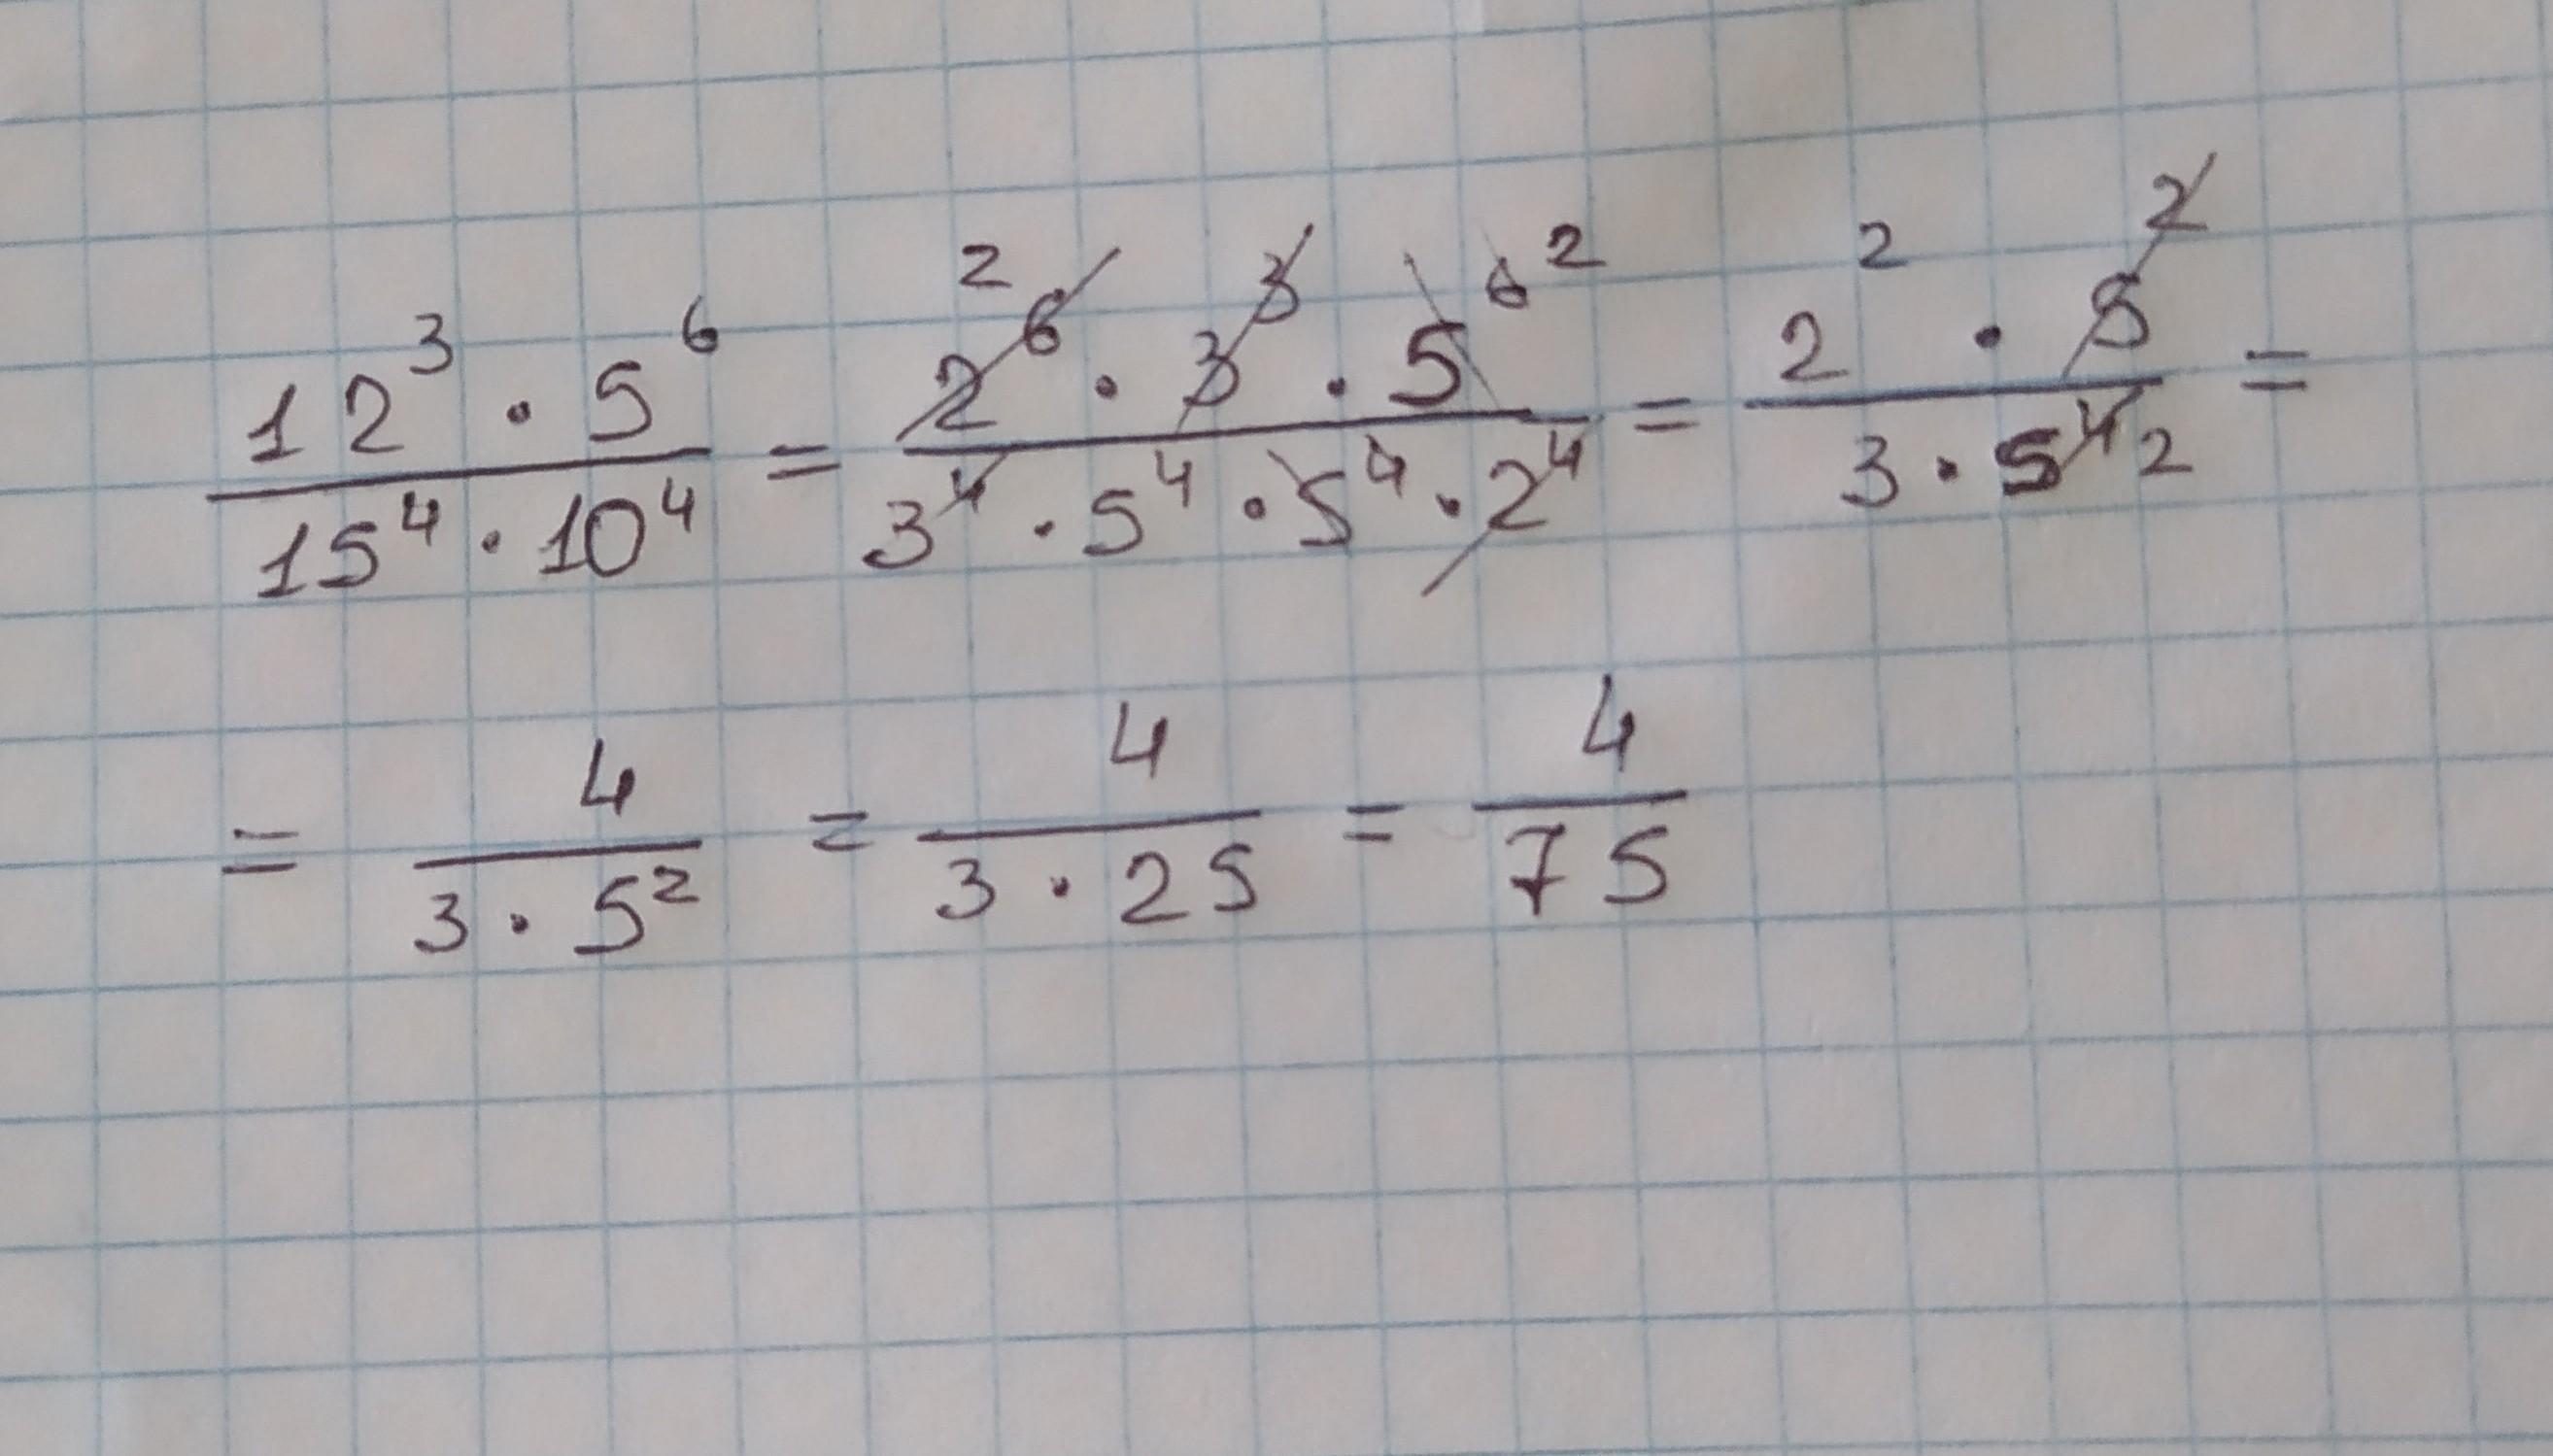 12³ · 5⁶ / 15⁴ · 10⁴ = 2⁶ ² · 3³ · 5⁶ ² / 3⁴ · 5⁴ · 5⁴ · 2⁴ = 2² · 5² / 3 · 5⁴ ² =
= 4 / 3 · 5² = 4 / 3 · 25 = 4 / 75